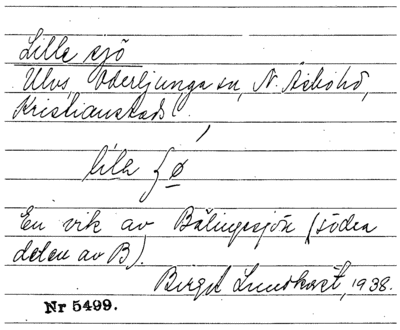 Lille sjö
Ulvs, Oderljunga sn, N. Åsbohd,
Kristianstads
lila ʃø
En vik av Bälingesjön (södra
delen av B).
Birgit Lundkvist, 1938.
Nr 5499.